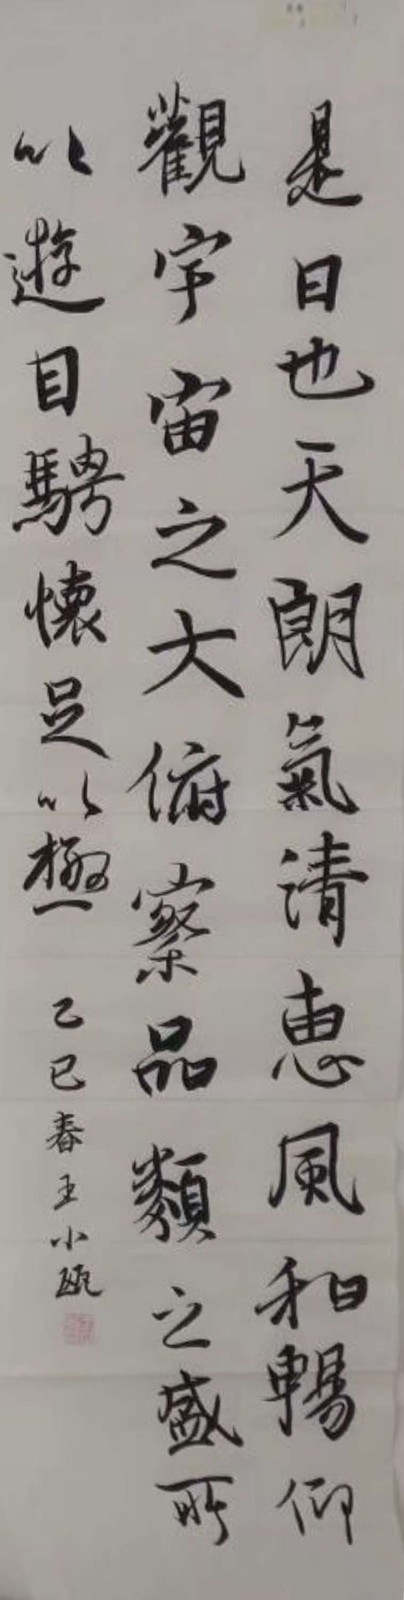 是日也天朗氣清惠風和暢仰
觀宇宙之大俯察品類之盛所
以遊目騁懷足以極
乙巳春王小甌